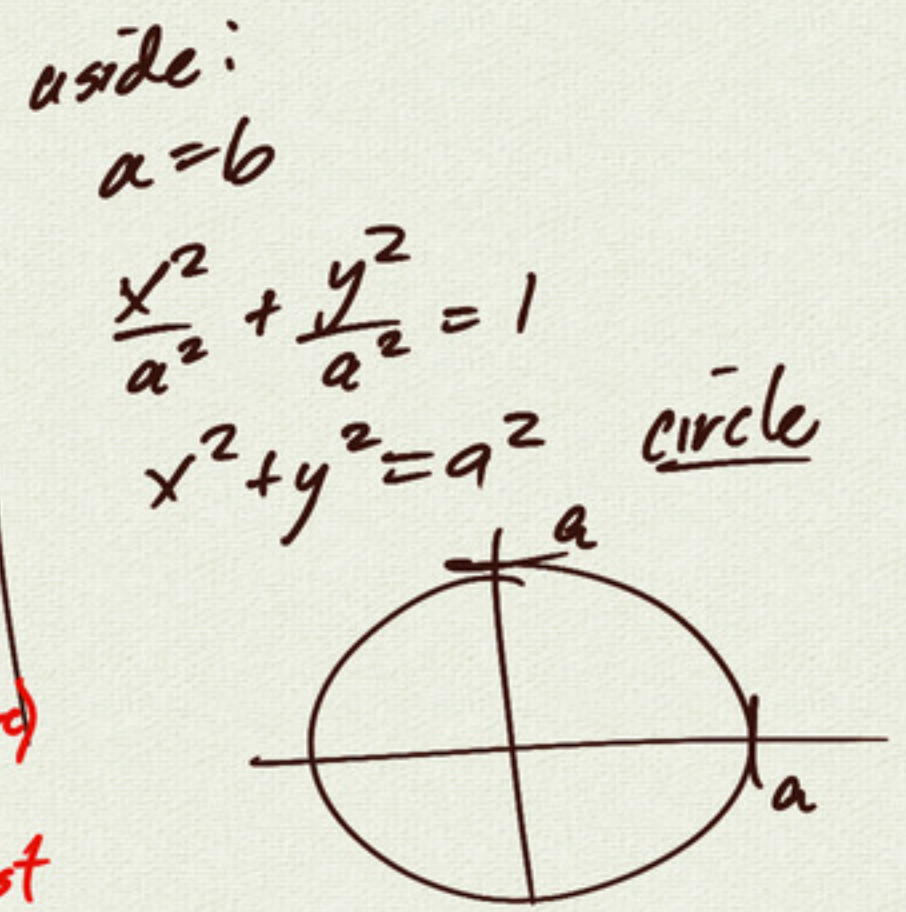 aside:
a = b
x²/a² + y²/a² = 1
x² + y² = a² circle
a
a
st